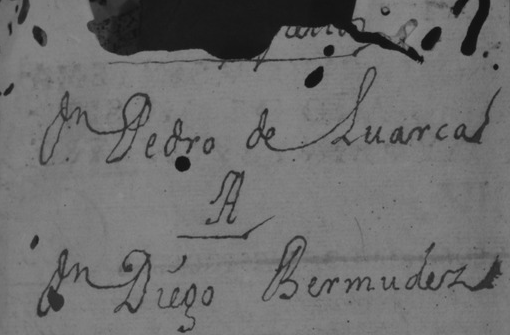 Dn Pedro de Luarca
A
Dn Diego Bermudez